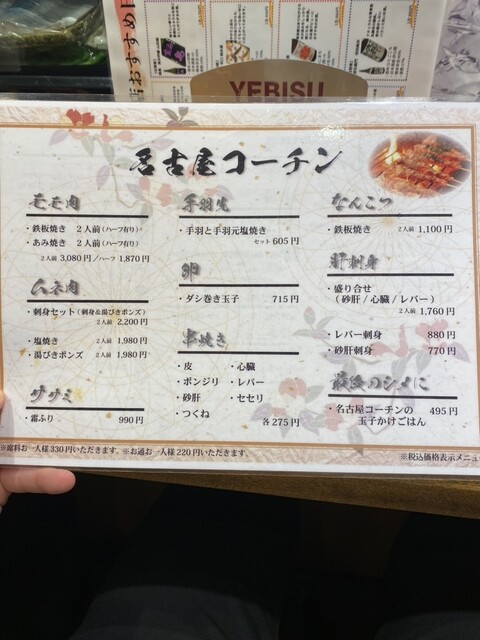 店おすすめ日
YEBISU
名古屋コーチン
モモ肉
・鉄板焼き 2人前(ハーフ有り)
・あみ焼き 2人前(ハーフ有り)
2人前 3,080円/ハーフ 1,870円
ムネ肉
・刺身セット(刺身&湯びきポンズ)
2人前 2,200円
・塩焼き 2人前 1,980円
・湯びきポンズ 2人前 1,980円
ササミ
・霜ふり 990円
手羽先
・手羽と手羽元塩焼き
セット 605円
卵
・ダシ巻き玉子 715円
串焼き
・皮 ・心臓
・ボンジリ ・レバー
・砂肝 ・セセリ
・つくね 各275円
なんこつ
・鉄板焼き 2人前 1,100円
肝刺身
・盛り合せ
(砂肝/心臓/レバー)
2人前 1,760円
・レバー刺身 880円
・砂肝刺身 770円
最後のシメに
・名古屋コーチンの 495円
玉子かけごはん
※席料お一人様330円いただきます。※お通お一人様220円いただきます。
※税込価格表示メニュ